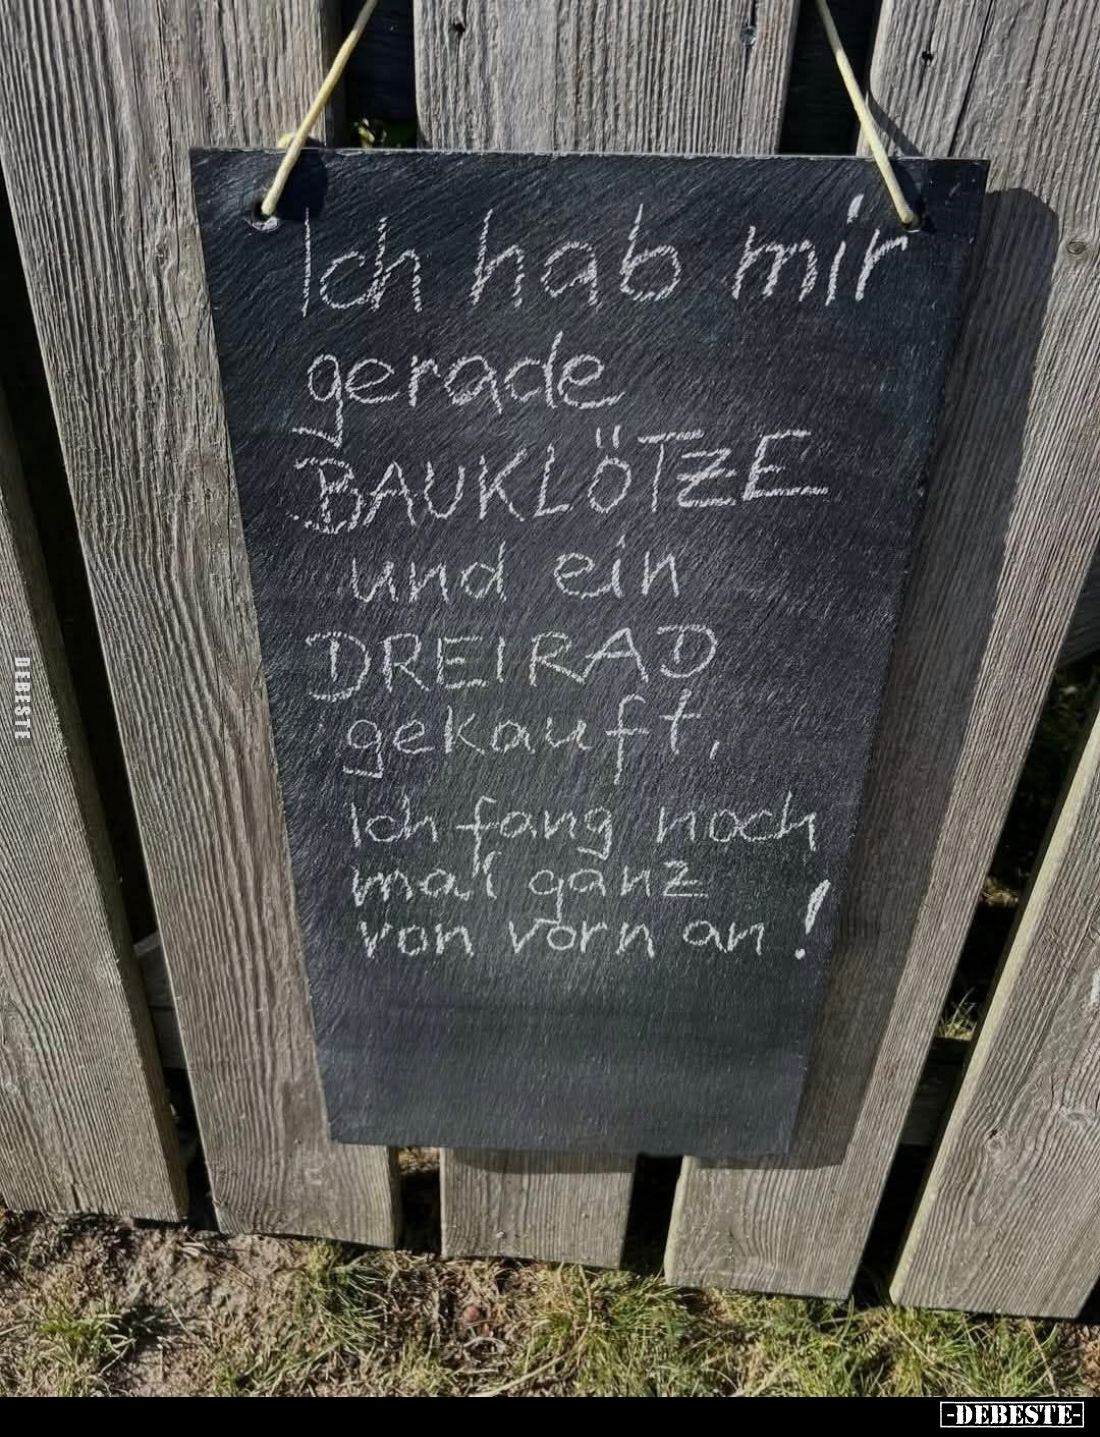 Ich hab mir
gerade
BAUKLÖTZE
und ein
DREIRAD
gekauft,
Ich fang noch
mal ganz
von vorn an!
DEBESTE
-DEBESTE-